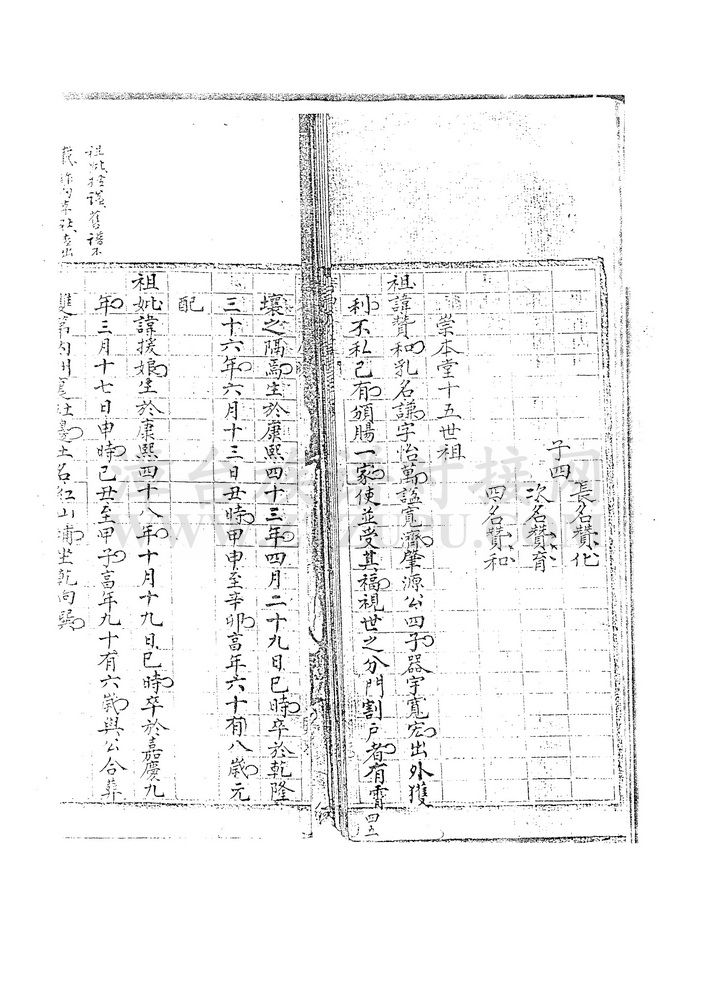 長名贊化
子四
次名贊育
四名贊和
崇本堂十五世祖
祖諱贊和乳名謙字怡萬諡寬濟肇源公四子器宇寬宏出外獲
利不私己有頒腸一家使並受其福視世之分門割戶者有霄
四五
壤之隔焉生於康熙四十三年四月二十九日巳時卒於乾隆
三十六年六月十三日丑時甲申至辛卯高年六十有八歲元
配
祖妣諱援娘生於康熙四十八年十月十九日巳時卒於嘉慶九
年三月十七日申時己丑至甲子高年九十有六歲與公合葬
社邊土名紅山埔坐乾向巽
祖妣 舊譜不